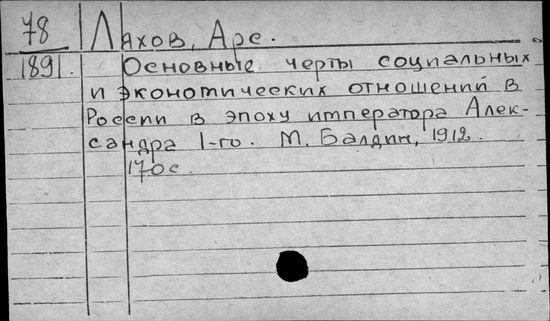 78 Ляхов, Арс.
1891. Основные черты социальных
и экономических отношений в
России в эпоху императора Алек-
сандра I-го. М. Балдин, 1912.
170 с.